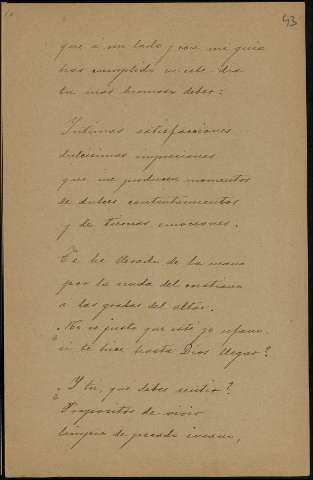 43
que á mi lado y con mi guia
has cumplido en este dia
tu mas hermoso deber:
Intimas satisfacciones
dulcisimas impresiones
que me producen momentos
de dulces contentamientos
y de tiernas emociones.
Te he llevado de la mano
por la senda del cristiano
a las gradas del altar.
¿No es justo que esté yo ufano
si te hice hasta Dios llegar?
¿Y tú, que debes sentir?
Propositos de vivir
limpia de pecado insano,